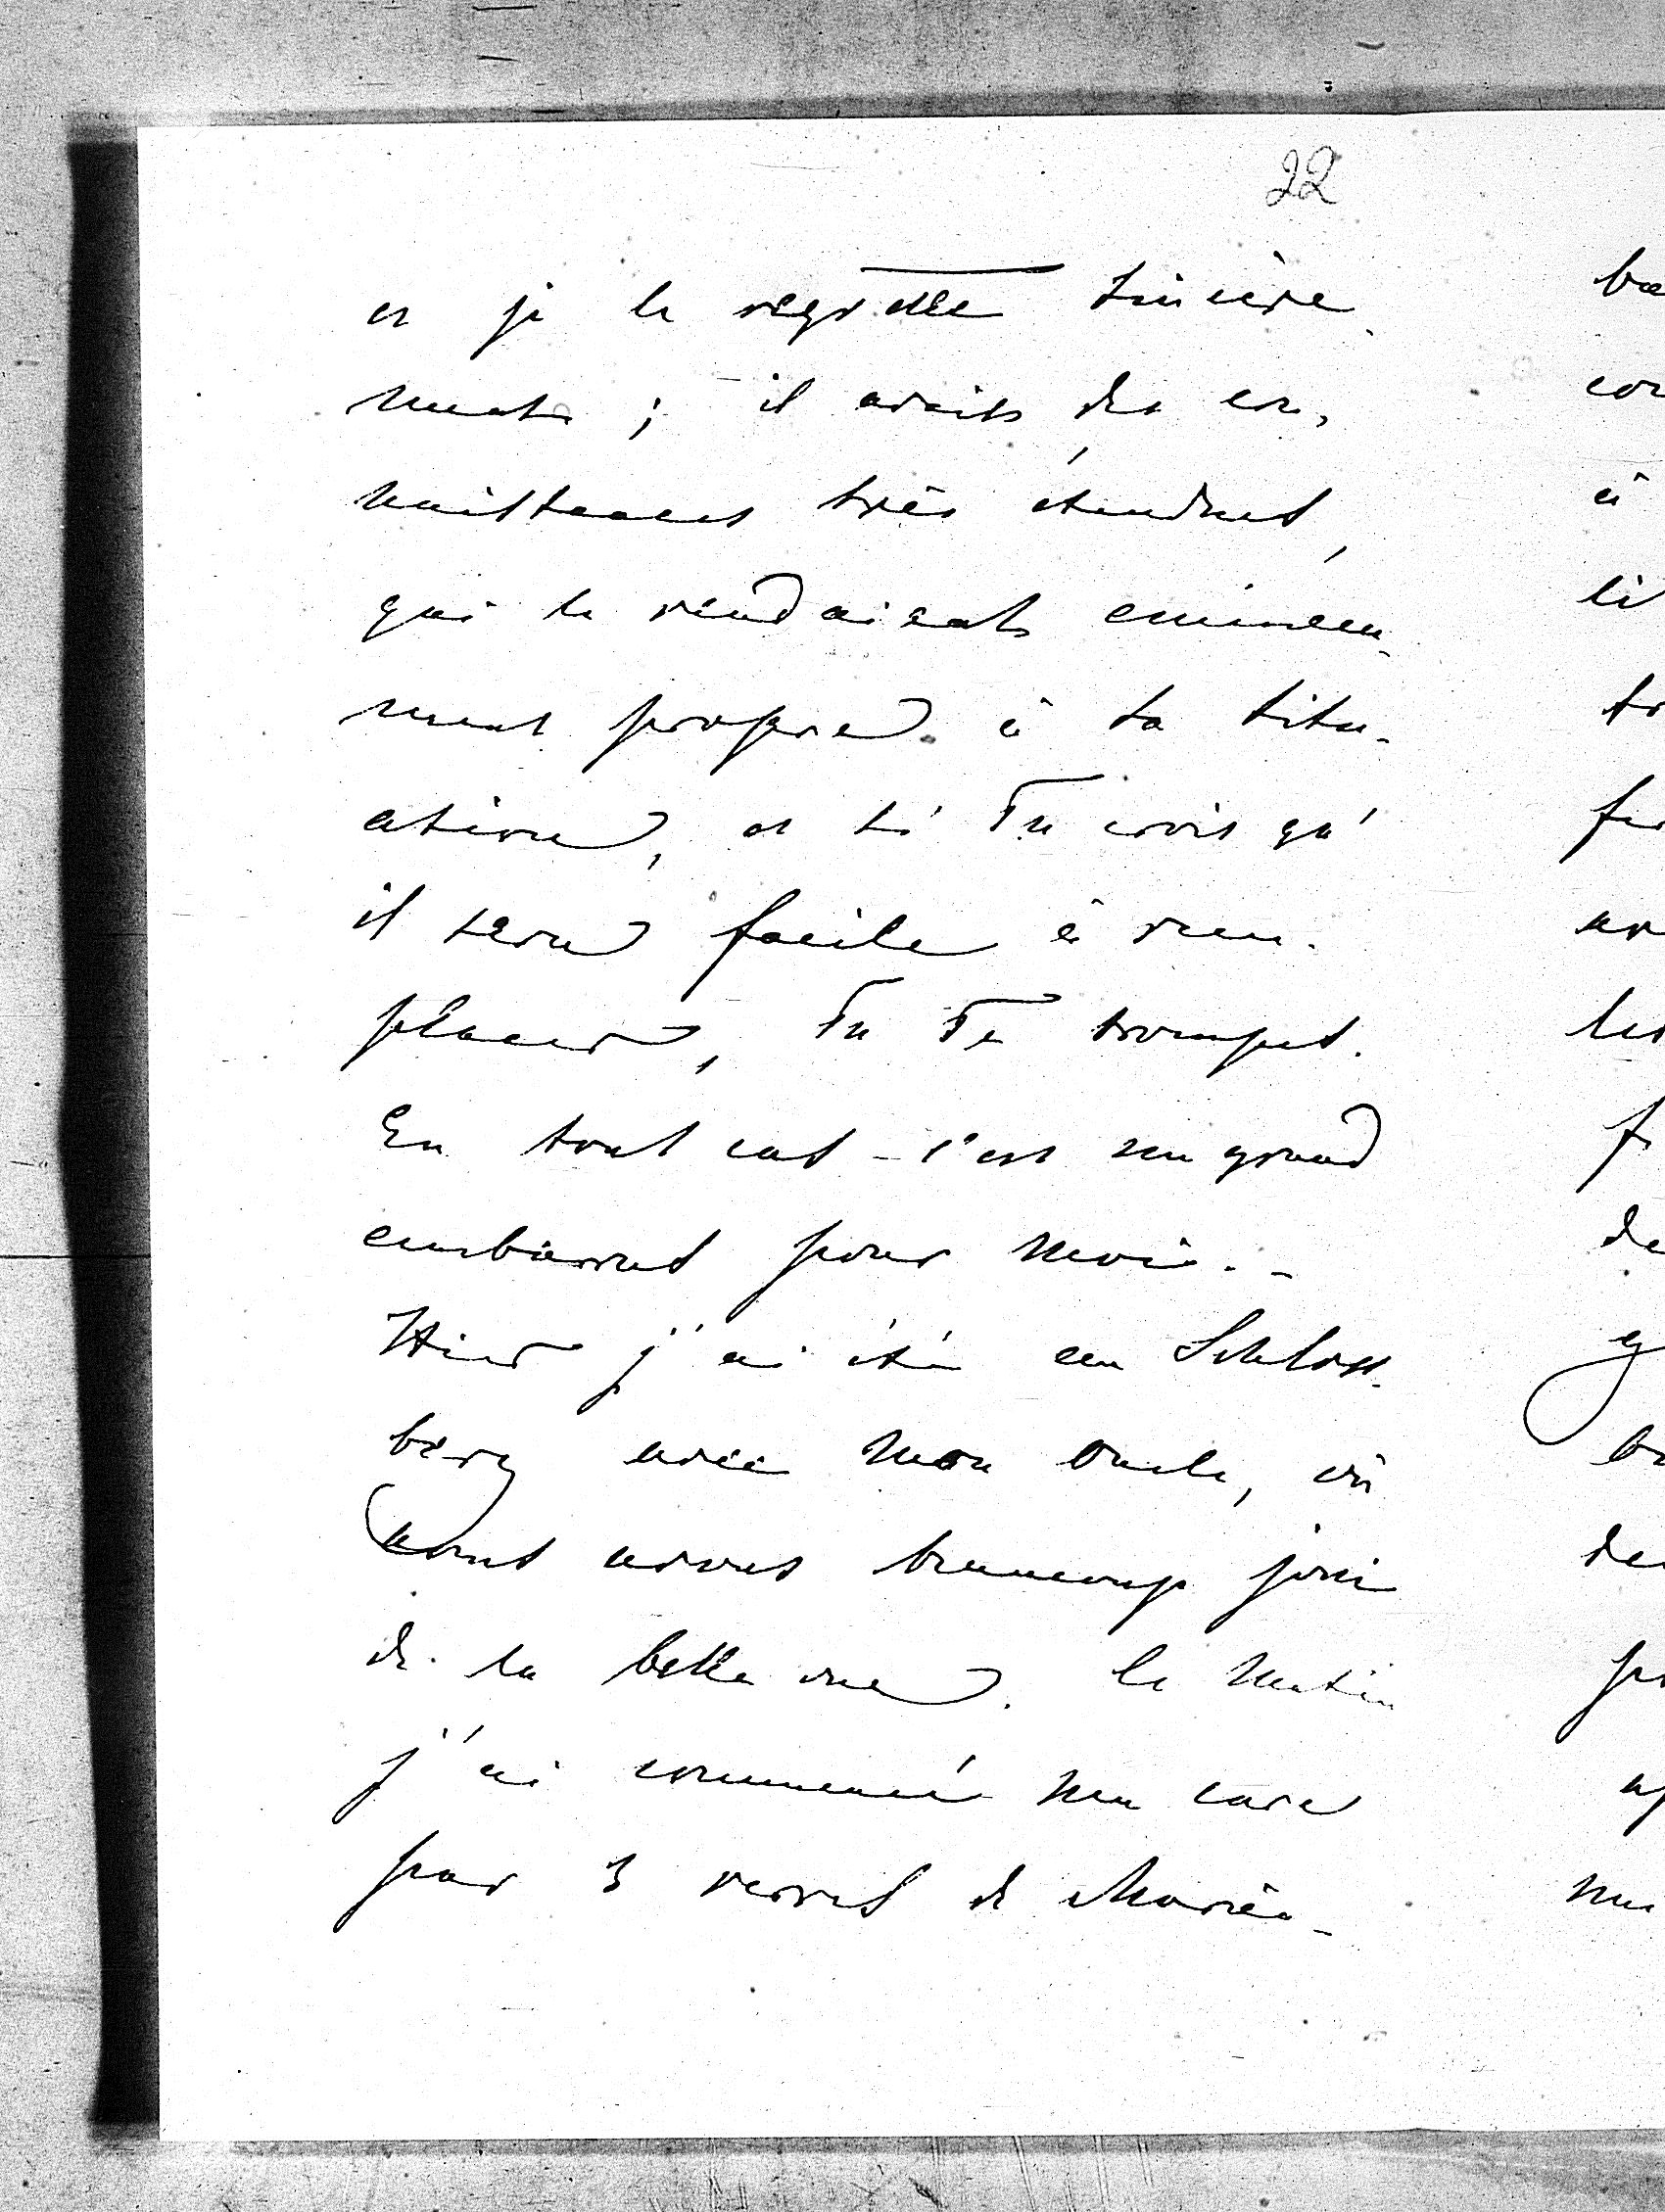 22
et je le regrette sincère-
ment ; il avait des con-
naissances très étendues,
qui le rendaient eminem-
ment propre à sa situ-
ation, et si Tu crois qu'
il sera facile à rem-
placer, Tu Te trompes.
En tout cas - c'est un grand
embarras pour moi. -
Hier j'ai été au Schloss-
berg avec mon oncle, où
nous avons beaucoup joui
de la belle vue. le matin
j'ai commencé ma cure
par 3 verres de Marien-